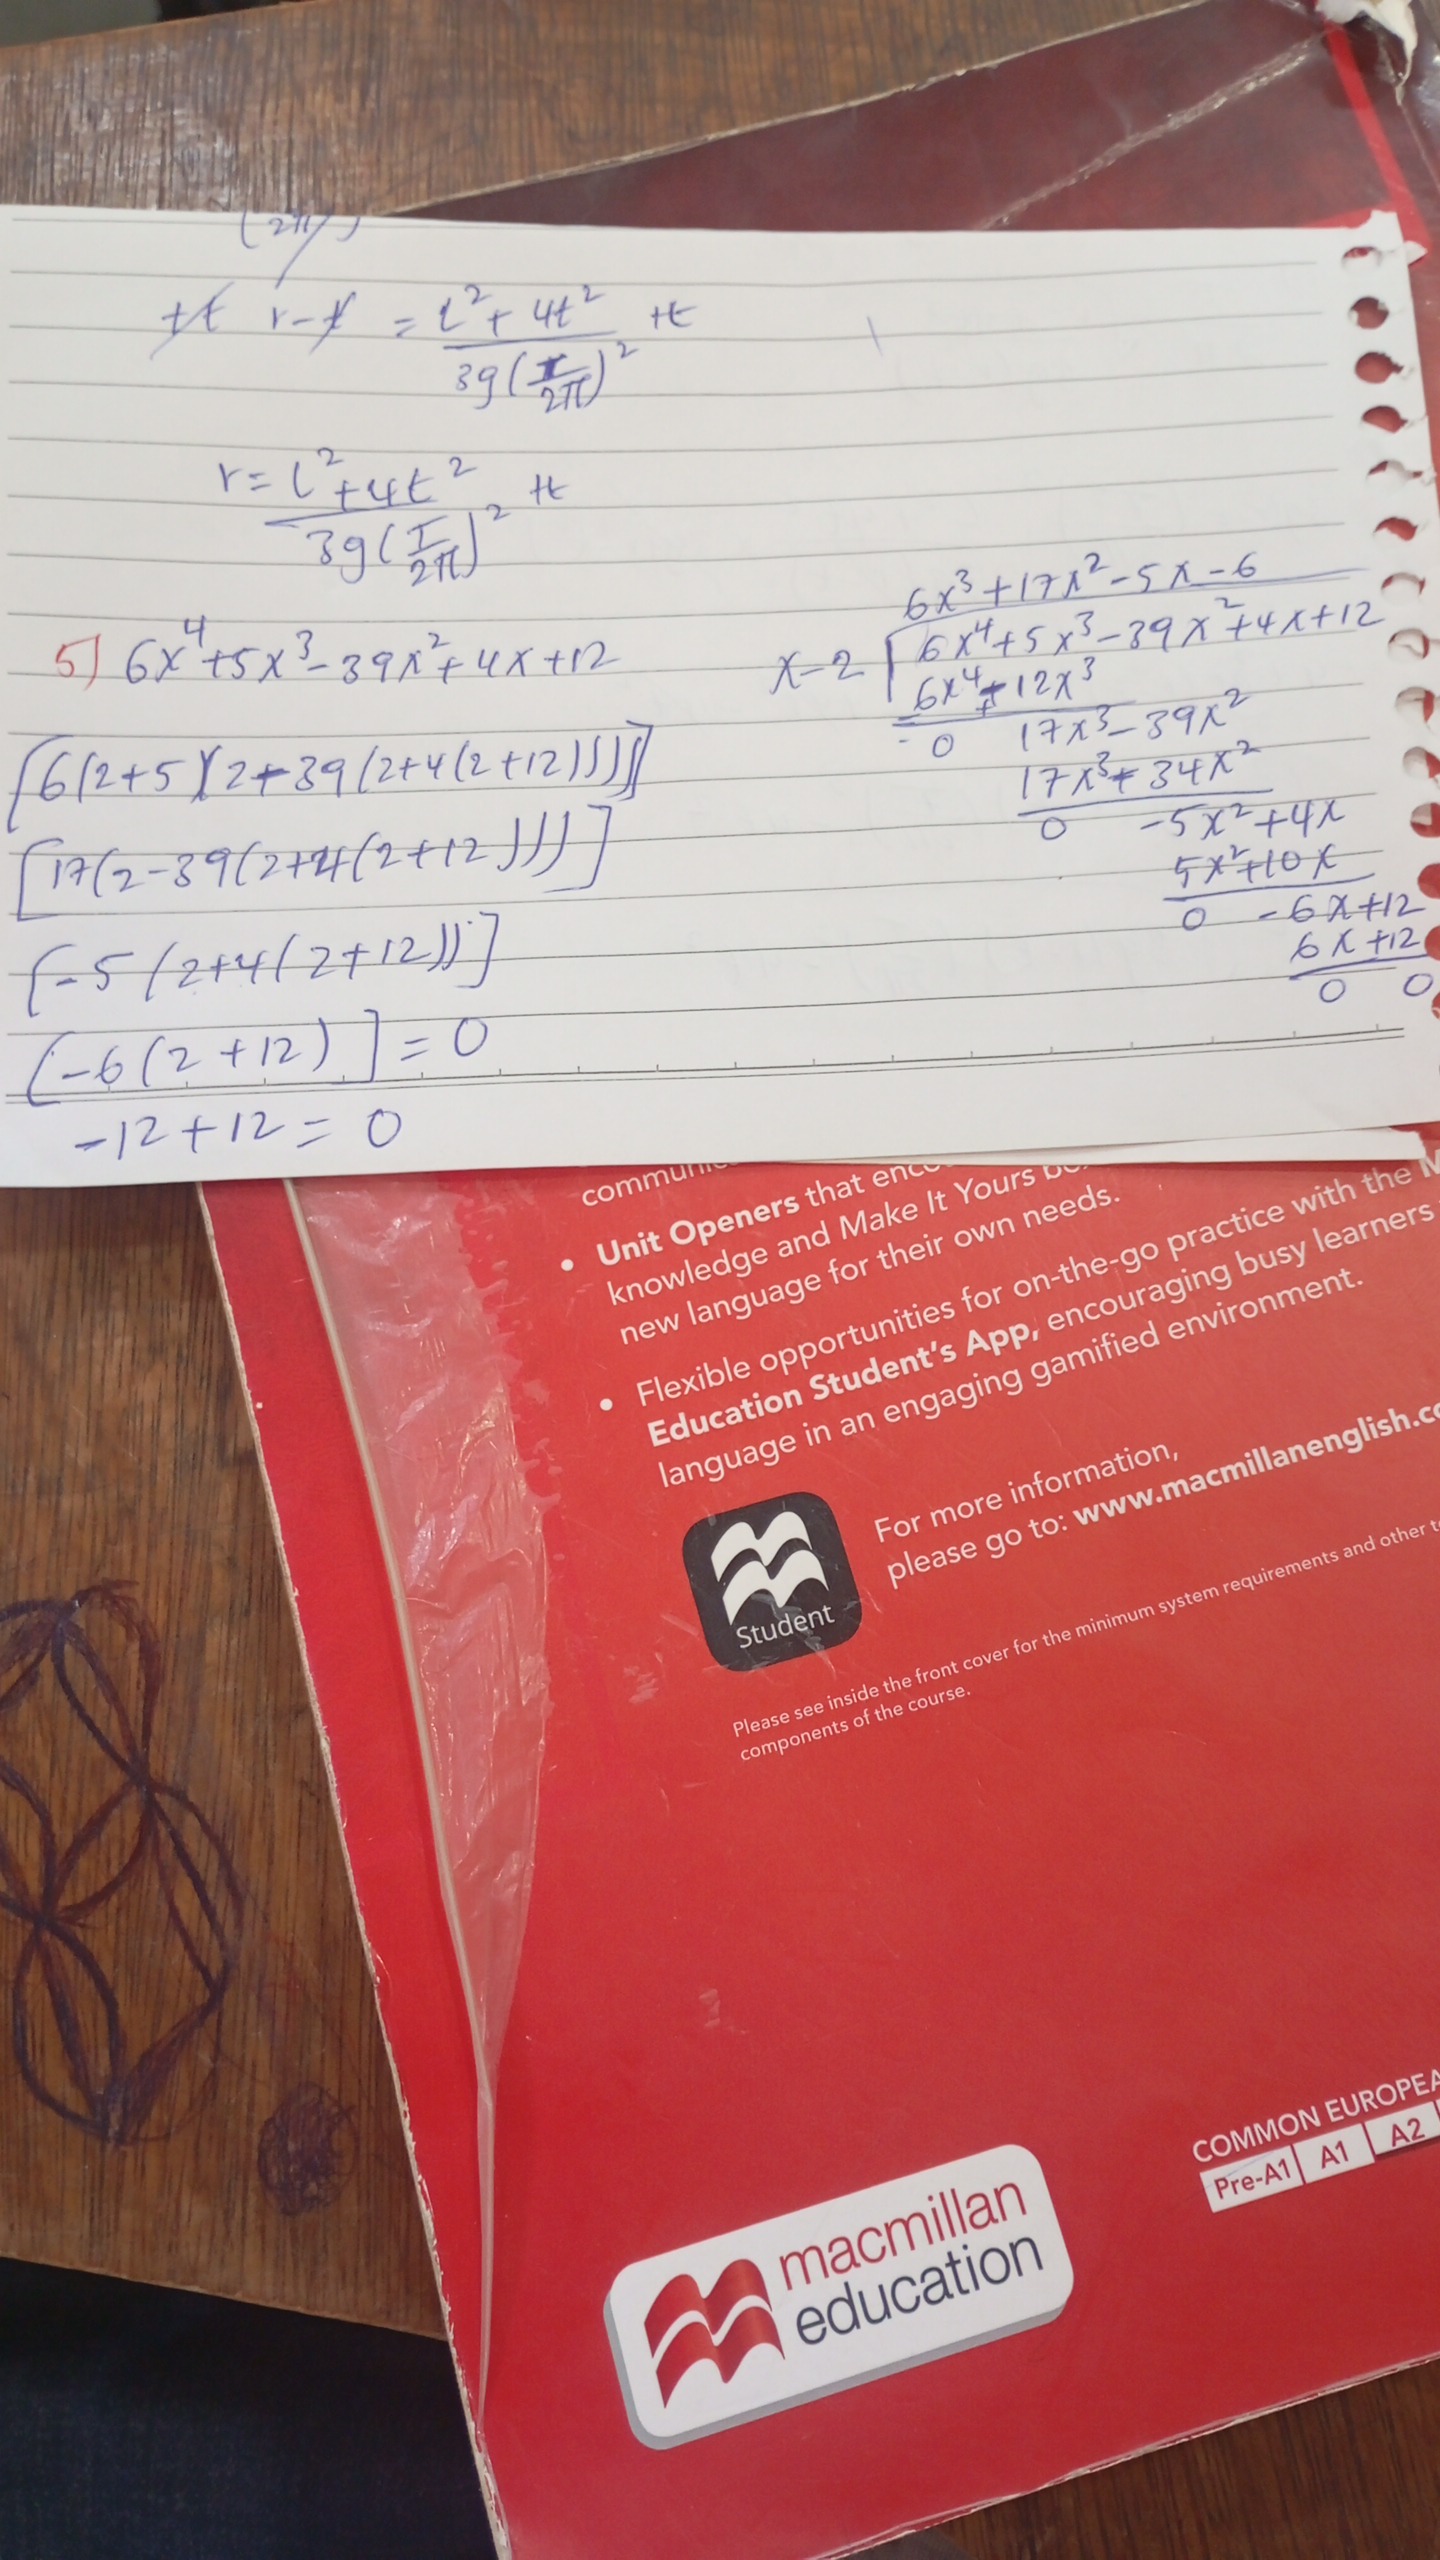 (2π)
+t r-t = l²+4t² +t
3g(T/2π)²
r = l²+4t² +t
3g(T/2π)²
5) 6x⁴+5x³-39x²+4x+12
[6(2+5)(2+-39(2+4(2+12))))]
[17(2-39(2+4(2+12)))]
[-5(2+4(2+12))]
[-6(2+12)] = 0
-12+12 = 0
6x³+17x²-5x-6
x-2 6x⁴+5x³-39x²+4x+12
6x⁴+12x³
-0 17x³-39x²
17x³+34x²
0 -5x²+4x
5x²+10x
0 -6x+12
6x+12
0 0
• Unit Openers that
knowledge and Make It Yours
new language for their own needs.
• Flexible opportunities for on-the-go practice with the
Education Student's App, encouraging busy learners
language in an engaging gamified environment.
For more information,
please go to: www.macmillanenglish.co
Student
Please see inside the front cover for the minimum system requirements and other
components of the course.
COMMON EUROPEA
Pre-A1 A1 A2
macmillan
education